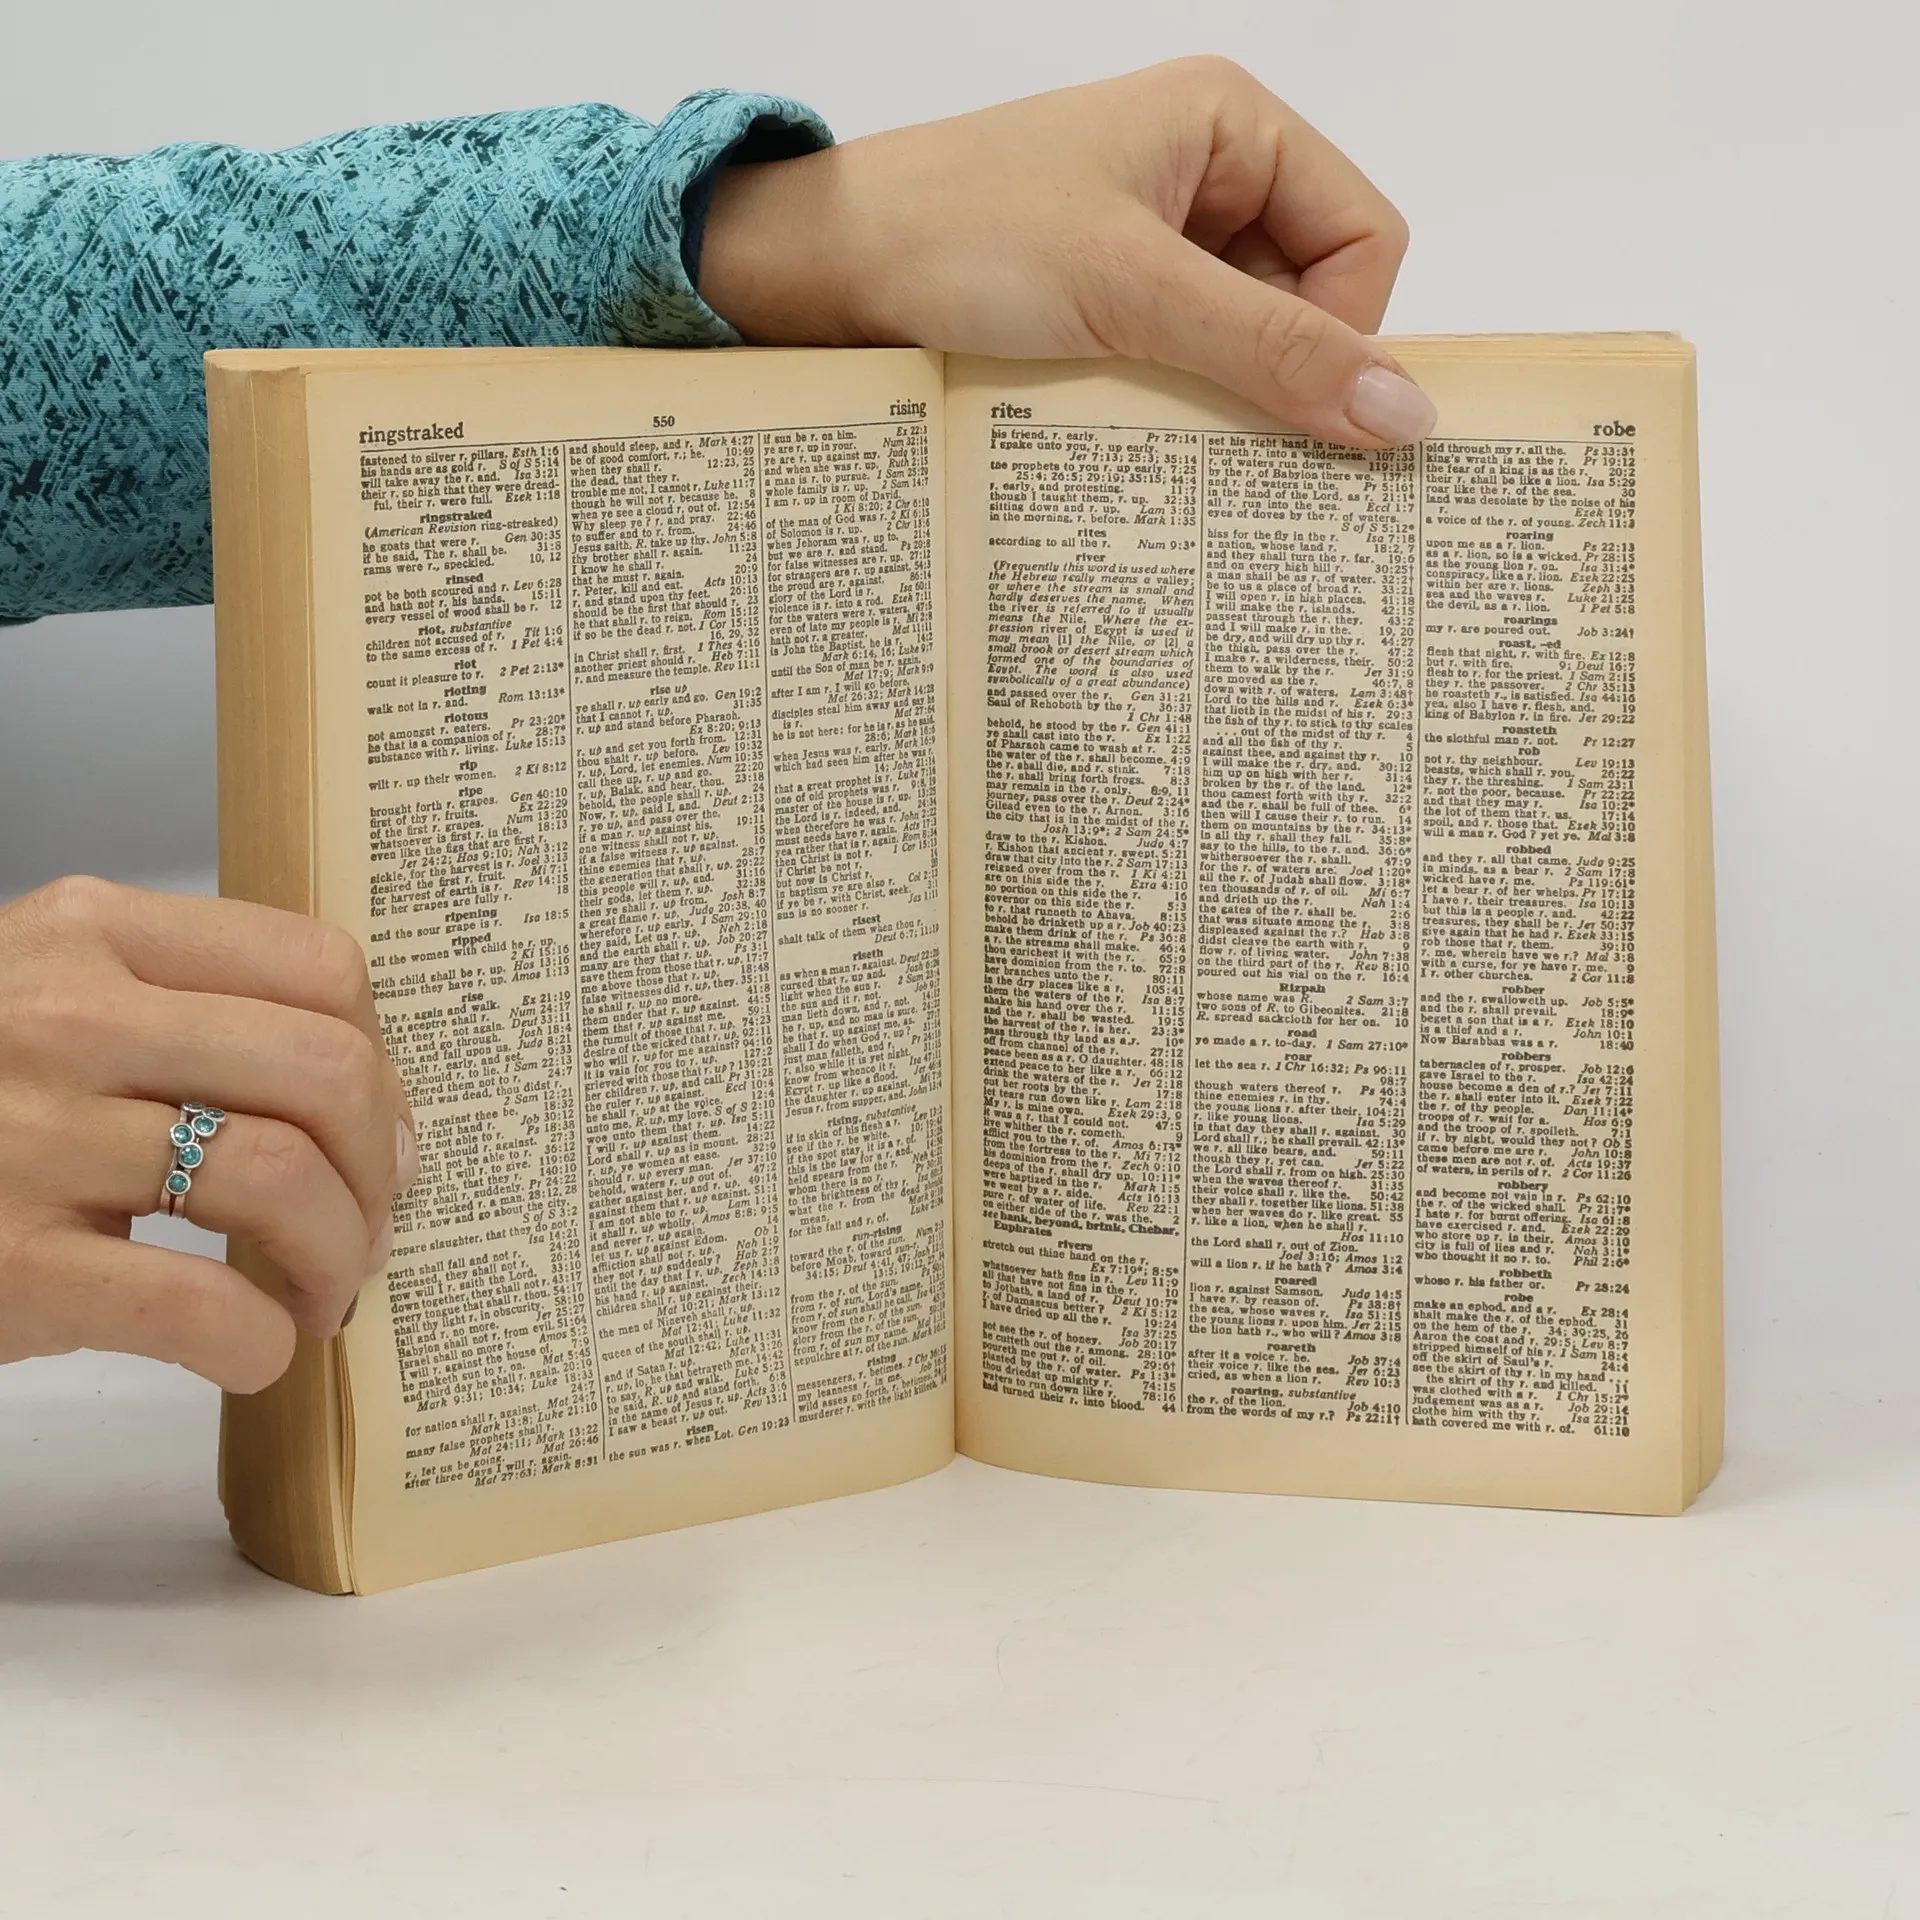 ringstraked
550
rising
fastened to silver r. pillars. Esth 1:6
his hands are as gold r. S of S 5:14
will take away the r. and. Isa 3:21
their r. so high that they were dread-
ful, their r. were full. Ezek 1:18
ringstraked
(American Revision ring-streaked)
he goats that were r. Gen 30:35
if he said, The r. shall be. 31:8
rams were r., speckled. 10, 12
rinsed
pot be both scoured and r. Lev 6:28
and hath not r. his hands. 15:11
every vessel of wood shall be r. 12
riot, substantive
children not accused of r. Tit 1:6
to the same excess of r. 1 Pet 4:4
riot
count it pleasure to r. 2 Pet 2:13*
rioting
walk not in r. and. Rom 13:13*
riotous
not amongst r. eaters. Pr 23:20*
he that is a companion of r. 28:7*
substance with r. living. Luke 15:13
rip
wilt r. up their women. 2 Ki 8:12
ripe
brought forth r. grapes. Gen 40:10
first of thy r. fruits. Ex 22:29
of the first r. grapes. Num 13:20
whatsoever is first r. in the. 18:13
even like the figs that are first r.
Jer 24:2; Hos 9:10; Nah 3:12
sickle, for the harvest is r. Joel 3:13
desired the first r. fruit. Mi 7:1
for harvest of earth is r. Rev 14:15
for her grapes are fully r. 18
ripening
and the sour grape is r. Isa 18:5
ripped
all the women with child he r. up.
2 Ki 15:16
with child shall be r. up. Hos 13:16
because they have r. up. Amos 1:13
rise
he r. again and walk. Ex 21:19
a sceptre shall r. Num 24:17
that they r. not again. Deut 33:11
r. and go through. Josh 18:4
thou and fall upon us. Judg 8:21
shalt r. early, and set. 9:33
he should r. to lie. 1 Sam 22:13
suffered them not to r. 24:7
child was dead, thou didst r.
2 Sam 12:21
r. against thee be. 18:32
right hand r. Job 30:12
are not able to r. Ps 18:38
should r. against. 27:3
shall not be able to r. 36:12
night I will r. to give. 119:62
deep pits, that they r. 140:10
shall r. suddenly. Pr 24:22
the wicked r. a man. 28:12, 28
will r. now and go about the city.
S of S 3:2
slaughter, that they do not r.
Isa 14:21
earth shall fall and not r. 24:20
deceased, they shall not r. 26:14
now will I r. saith the Lord. 33:10
down together, they shall not r. 43:17
every tongue that shall r. thou. 54:17
shall thy light r. in obscurity. 58:10
fall and r. no more. Jer 25:27
Babylon shall not r. from evil. 51:64
Israel shall no more r. Amos 5:2
I will r. against the house of. 7:9
he maketh sun to r. on. Mat 5:45
and third day he shall r. again. 20:19
Mark 9:31; 10:34; Luke 18:33
for nation shall r. against. Mat 24:7
Mark 13:8; Luke 21:10
many false prophets shall r.
Mat 24:11; Mark 13:22
r., let us be going. Mat 26:46
after three days I will r. again.
Mat 27:63; Mark 8:31
and should sleep, and r. Mark 4:27
be of good comfort, r.; he. 10:49
when they shall r. 12:23, 25
the dead, that they r. 26
trouble me not, I cannot r. Luke 11:7
though he will not r. because he. 8
when ye see a cloud r. out of. 12:54
Why sleep ye? r. and pray. 22:46
to suffer and to r. from. 24:46
Jesus saith, R. take up thy. John 5:8
thy brother shall r. again. 11:23
I know he shall r. 24
that he must r. again. 20:9
r. Peter, kill and eat. Acts 10:13
r. and stand upon thy feet. 26:16
should be the first that should r. 23
he that shall r. to reign. Rom 15:12
if so be the dead r. not. 1 Cor 15:15
16, 29, 32
in Christ shall r. first. 1 Thes 4:16
another priest should r. Heb 7:11
r. and measure the temple. Rev 11:1
rise up
ye shall r. up early and go. Gen 19:2
that I cannot r. up. 31:35
r. up and stand before Pharaoh.
Ex 8:20; 9:13
r. up and get you forth from. 12:31
thou shalt r. up before. Lev 19:32
r. up, Lord, let enemies. Num 10:35
call thee up, r. up and go. 22:20
r. up, Balak, and hear, thou. 23:18
behold, the people shall r. up. 24
Now, r. up, said I, and. Deut 2:13
r. ye up, and pass over the. 24
if a man r. up against his. 19:11
one witness shall not r. up. 15
if a false witness r. up against. 16
thine enemies that r. up. 28:7
the generation that shall r. up. 29:22
this people will r. up, and. 31:16
their gods, let them r. up. 32:38
then ye shall r. up from. Josh 8:7
a great flame r. up. Judg 20:38, 40
wherefore r. up early. 1 Sam 29:10
they said, Let us r. up. Neh 2:18
and the earth shall r. up. Job 20:27
many are they that r. up. Ps 3:1
save them from those that r. up. 17:7
me above those that r. up. 18:48
false witnesses did r. up, they. 35:11
he shall r. up no more. 41:8
them under that r. up against. 44:5
them that r. up against me. 59:1
the tumult of those that r. up. 74:23
desire of the wicked that r. up. 92:11
who will r. up for me against? 94:16
it is vain for you to r. up. 127:2
grieved with those that r. up? 139:21
her children r. up, and call. Pr 31:28
the ruler r. up against. Eccl 10:4
he shall r. up at the voice. 12:4
unto me, R. up, my love. S of S 2:10
woe unto them that r. up. Isa 5:11
I will r. up against them. 14:22
Lord shall r. up as in mount. 28:21
r. up, ye women at ease. 32:9
should r. up every man. Jer 37:10
behold, waters r. up out of. 47:2
against her, and r. up. 49:14
against them that r. up against. 51:1
I am not able to r. up. Lam 1:14
it shall r. up wholly. Amos 8:8; 9:5
and never r. up again. 14
let us r. up against Edom. Ob 1
affliction shall not r. up. Nah 1:9
they not r. up suddenly? Hab 2:7
until the day that I r. up. Zeph 3:8
his hand r. up against. Zech 14:13
children shall r. up against their.
Mat 10:21; Mark 13:12
the men of Nineveh shall r. up.
Mat 12:41; Luke 11:32
queen of the south shall r. up.
Mat 12:42; Luke 11:31
and if Satan r. up. Mark 3:26
r. up, lo, he that betrayeth me. 14:42
to say, R. up and walk. Luke 5:23
he said, R. up and stand forth. 6:8
in the name of Jesus r. up. Acts 3:6
I saw a beast r. up out. Rev 13:1
risen
the sun was r. when Lot. Gen 19:23
if sun be r. on him. Ex 22:3
ye are r. up in your. Num 32:14
ye are r. up against my. Judg 9:18
and when she was r. up. Ruth 2:15
a man is r. to pursue. 1 Sam 25:29
whole family is r. up. 2 Sam 14:7
I am r. up in room of David.
1 Ki 8:20; 2 Chr 6:10
of the man of God was r. 2 Ki 6:15
of Solomon is r. up. 2 Chr 13:6
when Jehoram was r. up to. 21:4
but we are r. and stand. Ps 20:8
for false witnesses are r. up. 27:12
for strangers are r. up against. 54:3
the proud are r. against. 86:14
glory of the Lord is r. Isa 60:1
violence is r. into a rod. Ezek 7:11
for the waters were r. waters. 47:5
even of late my people is r. Mi 2:8
hath not r. a greater. Mat 11:11
is John the Baptist, he is r. 14:2
Mark 6:14, 16; Luke 9:7
until the Son of man be r. again.
Mat 17:9; Mark 9:9
after I am r. I will go before.
Mat 26:32; Mark 14:28
disciples steal him away and say he
is r. Mat 27:64
he is not here: for he is r. as he said.
28:6; Mark 16:6
when Jesus was r. early. Mark 16:9
which had seen him after he was r.
14; John 21:14
that a great prophet is r. Luke 7:16
one of old prophets was r. 9:8, 19
master of the house is r. up. 13:25
the Lord is r. indeed, and. 24:34
when therefore he was r. John 2:22
must needs have r. again. Acts 17:3
yea rather that is r. again. Rom 8:34
then Christ is not r. 1 Cor 15:13
if Christ be not r. 14
but now is Christ r. 20
in baptism ye are also r. Col 2:12
if ye be r. with Christ, seek. 3:1
sun is no sooner r. Jas 1:11
risest
shalt talk of them when thou r.
Deut 6:7; 11:19
riseth
as when a man r. against. Deut 22:26
cursed that r. up and. Josh 6:26
light when the sun r. 2 Sam 23:4
the sun and it r. not. Job 9:7
man lieth down, and r. not. 14:12
he r. up, and no man is sure. 24:22
be that r. up against me, as. 27:7
shall I do when God r. up? 31:14
just man falleth, and r. Pr 24:16
r. also while it is yet night. 31:15
know from whence it r. Isa 47:11
Egypt r. up like a flood. Jer 46:8
the daughter r. up against. Mi 7:6
Jesus r. from supper, and. John 13:4
rising, substantive
if in skin of his flesh a r. Lev 13:2
see if the r. be white. 10; 19:43
if the spot stay, it is a r. of. 13:28
this is the law for a r. and. 14:56
held spears from the r. Neh 4:21
whom there is no r. Pr 30:31
to the brightness of thy r. Isa 60:3
what the r. from the dead should
mean. Mark 9:10
for the fall and r. of. Luke 2:34
sun-rising
toward the r. of the sun. Num 2:3
before Moab, toward sun-r. 21:11
from the r. of the sun.
from r. of sun, Lord's name.
from r. of sun shall he call. Isa 41:25
know from the r. of the sun. 45:6
glory from the r. of the sun. 59:19
from r. of sun my name. Mal 1:11
sepulchre at r. of the sun. Mark 16:2
rising
messengers, r. betimes. 2 Chr 36:15
my leanness r. in me. Job 16:8
wild asses go forth, r. betimes. 24:5
murderer r. with the light killeth. 14
rites
robe
his friend, r. early. Pr 27:14
I spake unto you, r. up early.
Jer 7:13; 25:3; 35:14
the prophets to you r. up early. 7:25
25:4; 26:5; 29:19; 35:15; 44:4
r. early, and protesting. 11:7
though I taught them, r. up. 32:33
sitting down and r. up. Lam 3:63
in the morning, r. before. Mark 1:35
rites
according to all the r. Num 9:3*
river
(Frequently this word is used where
the Hebrew really means a valley;
or where the stream is small and
hardly deserves the name. When
the river is referred to it usually
means the Nile. Where the ex-
pression river of Egypt is used it
may mean [1] the Nile, or [2] a
small brook or desert stream which
formed one of the boundaries of
Egypt. The word is also used
symbolically of a great abundance)
and passed over the r. Gen 31:21
Saul of Rehoboth by the r. 36:37
1 Chr 1:48
behold, he stood by the r. Gen 41:1
ye shall cast into the r. Ex 1:22
of Pharaoh came to wash at r. 2:5
the water of the r. shall become. 4:9
the r. shall die, and r. stink. 7:18
the r. shall bring forth frogs. 8:3
may remain in the r. only. 8:9, 11
journey, pass over the r. Deut 2:24*
Gilead even to the r. Arnon. 3:16
the city that is in the midst of the r.
Josh 13:9*; 2 Sam 24:5*
draw to the r. Kishon. Judg 4:7
r. Kishon that ancient r. swept. 5:21
draw that city into the r. 2 Sam 17:13
reigned over from the r. 1 Ki 4:21
are on this side the r. Ezra 4:10
no portion on this side the r. 16
governor on this side the r. 5:3
to r. that runneth to Ahava. 8:15
behold he drinketh up a r. Job 40:23
make them drink of the r. Ps 36:8
a r. the streams shall make. 46:4
thou enrichest it with the r. 65:9
have dominion from the r. to. 72:8
her branches unto the r. 80:11
in the dry places like a r. 105:41
them the waters of the r. Isa 8:7
shake his hand over the r. 11:15
and the r. shall be wasted. 19:5
the harvest of the r. is her. 23:3*
pass through thy land as a r. 10*
off from channel of the r. 27:12
peace been as a r. O daughter. 48:18
extend peace to her like a r. 66:12
drink the waters of the r. Jer 2:18
out her roots by the r. 17:8
let tears run down like r. Lam 2:18
My r. is mine own. Ezek 29:3, 9
it was a r. that I could not. 47:5
live whither the r. cometh. 9
afflict you to the r. of. Amos 6:14*
from the fortress to the r. Mi 7:12
his dominion from the r. Zech 9:10
deeps of the r. shall dry up. 10:11*
were baptized in the r. Mark 1:5
we went by a r. side. Acts 16:13
pure r. of water of life. Rev 22:1
on either side of the r. was the. 2
see bank, beyond, brink, Chebar,
Euphrates
rivers
stretch out thine hand on the r.
Ex 7:19*; 8:5*
whatsoever hath fins in r. Lev 11:9
all that have not fins in the r. 10
to Jotbath, a land of r. Deut 10:7*
r. of Damascus better? 2 Ki 5:12
I have dried up all the r. 19:24
Isa 37:25
not see the r. of honey. Job 20:17
he cutteth out the r. among. 28:10*
poureth me out r. of oil. 29:6†
planted by the r. of water. Ps 1:3*
thou driedst up mighty r. 74:15
waters to run down like r. 78:16
had turned their r. into blood. 44
set his right hand in the
turneth r. into a wilderness. 107:33
r. of waters run down. 119:136
by the r. of Babylon there we. 137:1
and r. of waters in the. Pr 5:16†
in the hand of the Lord, as r. 21:1*
all r. run into the sea. Eccl 1:7
eyes of doves by the r. of waters.
S of S 5:12*
hiss for the fly in the r. Isa 7:18
a nation, whose land r. 18:2, 7
and they shall turn the r. far. 19:6
and on every high hill r. 30:25†
a man shall be as r. of water. 32:2†
be to us a place of broad r. 33:21
I will open r. in high places. 41:18
I will make the r. islands. 42:15
passest through the r. they. 43:2
and I will make r. in the. 19, 20
be dry, and will dry up thy r. 44:27
the thigh, pass over the r. 47:2
I make r. a wilderness, their. 50:2
them to walk by the r. Jer 31:9
are moved as the r. 46:7, 8
down with r. of waters. Lam 3:48†
Lord to the hills and r. Ezek 6:3*
that lieth in the midst of his r. 29:3
the fish of thy r. to stick to thy scales
... out of the midst of thy r. 4
and all the fish of thy r. 5
against thee, and against thy r. 10
I will make the r. dry, and. 30:12
him up on high with her r. 31:4
broken by the r. of the land. 12*
thou camest forth with thy r. 32:2
and the r. shall be full of thee. 6*
then will I cause their r. to run. 14
them on mountains by the r. 34:13*
in all thy r. shall they fall. 35:8*
say to the hills, to the r. and. 36:6*
whithersoever the r. shall. 47:9
for the r. of waters are. Joel 1:20*
all the r. of Judah shall flow. 3:18*
ten thousands of r. of oil. Mi 6:7
and drieth up the r. Nah 1:4
the gates of the r. shall be. 2:6
that was situate among the r. 3:8
displeased against the r.? Hab 3:8
didst cleave the earth with r. 9
flow r. of living water. John 7:38
on the third part of the r. Rev 8:10
poured out his vial on the r. 16:4
Rizpah
whose name was R. 2 Sam 3:7
two sons of R. to Gibeonites. 21:8
R. spread sackcloth for her on. 10
road
ye made a r. to-day. 1 Sam 27:10*
roar
let the sea r. 1 Chr 16:32; Ps 96:11
98:7
though waters thereof r. Ps 46:3
thine enemies r. in thy. 74:4
the young lions r. after their. 104:21
r. like young lions. Isa 5:29
in that day they shall r. against. 30
Lord shall r.; he shall prevail. 42:13*
we r. all like bears, and. 59:11
though they r. yet can. Jer 5:22
the Lord shall r. from on high. 25:30
when the waves thereof r. 31:35
their voice shall r. like the. 50:42
they shall r. together like lions. 51:38
when her waves do r. like great. 55
r. like a lion, when he shall r.
Hos 11:10
the Lord shall r. out of Zion.
Joel 3:16; Amos 1:2
will a lion r. if he hath? Amos 3:4
roared
lion r. against Samson. Judg 14:5
I have r. by reason of. Ps 38:8†
the sea, whose waves r. Isa 51:15
the young lions r. upon him. Jer 2:15
the lion hath r., who will? Amos 3:8
roareth
after it a voice r. he. Job 37:4
their voice r. like the sea. Jer 6:23
cried, as when a lion r. Rev 10:3
roaring, substantive
the r. of the lion. Job 4:10
from the words of my r.? Ps 22:1†
old through my r. all the. Ps 33:3†
king's wrath is as the r. Pr 19:12
the fear of a king is as the r. 20:2
their r. shall be like a lion. Isa 5:29
roar like the r. of the sea. 30
land was desolate by the noise of his
r. Ezek 19:7
a voice of the r. of young. Zech 11:3
roaring
upon me as a r. lion. Ps 22:13
as a r. lion, so is a wicked. Pr 28:15
as the young lion r. on. Isa 31:4*
conspiracy, like a r. lion. Ezek 22:25
within her are r. lions. Zeph 3:3
sea and the waves r. Luke 21:25
the devil, as a r. lion. 1 Pet 5:8
roarings
my r. are poured out. Job 3:24†
roast, -ed
flesh that night, r. with fire. Ex 12:8
but r. with fire. 9; Deut 16:7
flesh to r. for the priest. 1 Sam 2:15
they r. the passover. 2 Chr 35:13
he roasteth r., is satisfied. Isa 44:16
yea, also I have r. flesh, and. 19
king of Babylon r. in fire. Jer 29:22
roasteth
the slothful man r. not. Pr 12:27
rob
not r. thy neighbour. Lev 19:13
beasts, which shall r. you. 26:22
they r. the threshing. 1 Sam 23:1
r. not the poor, because. Pr 22:22
and that they may r. Isa 10:2*
the lot of them that r. us. 17:14
spoil, and r. those that. Ezek 39:10
will a man r. God? yet ye. Mal 3:8
robbed
and they r. all that came. Judg 9:25
in minds, as a bear r. 2 Sam 17:8
wicked have r. me. Ps 119:61*
let a bear r. of her whelps. Pr 17:12
I have r. their treasures. Isa 10:13
but this is a people r. and. 42:22
treasures, they shall be r. Jer 50:37
give again that he had r. Ezek 33:15
rob those that r. them. 39:10
r. me, wherein have we r.? Mal 3:8
with a curse, for ye have r. me. 9
I r. other churches. 2 Cor 11:8
robber
and the r. swalloweth up. Job 5:5*
and the r. shall prevail. 18:9*
beget a son that is a r. Ezek 18:10
is a thief and a r. John 10:1
Now Barabbas was a r. 18:40
robbers
tabernacles of r. prosper. Job 12:6
gave Israel to the r. Isa 42:24
house become a den of r.? Jer 7:11
the r. shall enter into it. Ezek 7:22
the r. of thy people. Dan 11:14*
troops of r. wait for a. Hos 6:9
and the troop of r. spoileth. 7:1
if r. by night, would they not? Ob 5
came before me are r. John 10:8
these men are not r. of. Acts 19:37
of waters, in perils of r. 2 Cor 11:26
robbery
and become not vain in r. Ps 62:10
the r. of the wicked shall. Pr 21:7*
I hate r. for burnt offering. Isa 61:8
have exercised r. and. Ezek 22:29
who store up r. in their. Amos 3:10
city is full of lies and r. Nah 3:1*
who thought it no r. to. Phil 2:6*
robbeth
whoso r. his father or. Pr 28:24
robe
make an ephod, and a r. Ex 28:4
shalt make the r. of the ephod. 31
on the hem of the r. 34; 39:25, 26
Aaron the coat and r. 29:5; Lev 8:7
stripped himself of his r. 1 Sam 18:4
off the skirt of Saul's r. 24:4
see the skirt of thy r. in my hand ...
the skirt of thy r. and killed. 11
was clothed with a r. 1 Chr 15:27
judgement was as a r. Job 29:14
clothe him with thy r. Isa 22:21
hath covered me with r. of. 61:10